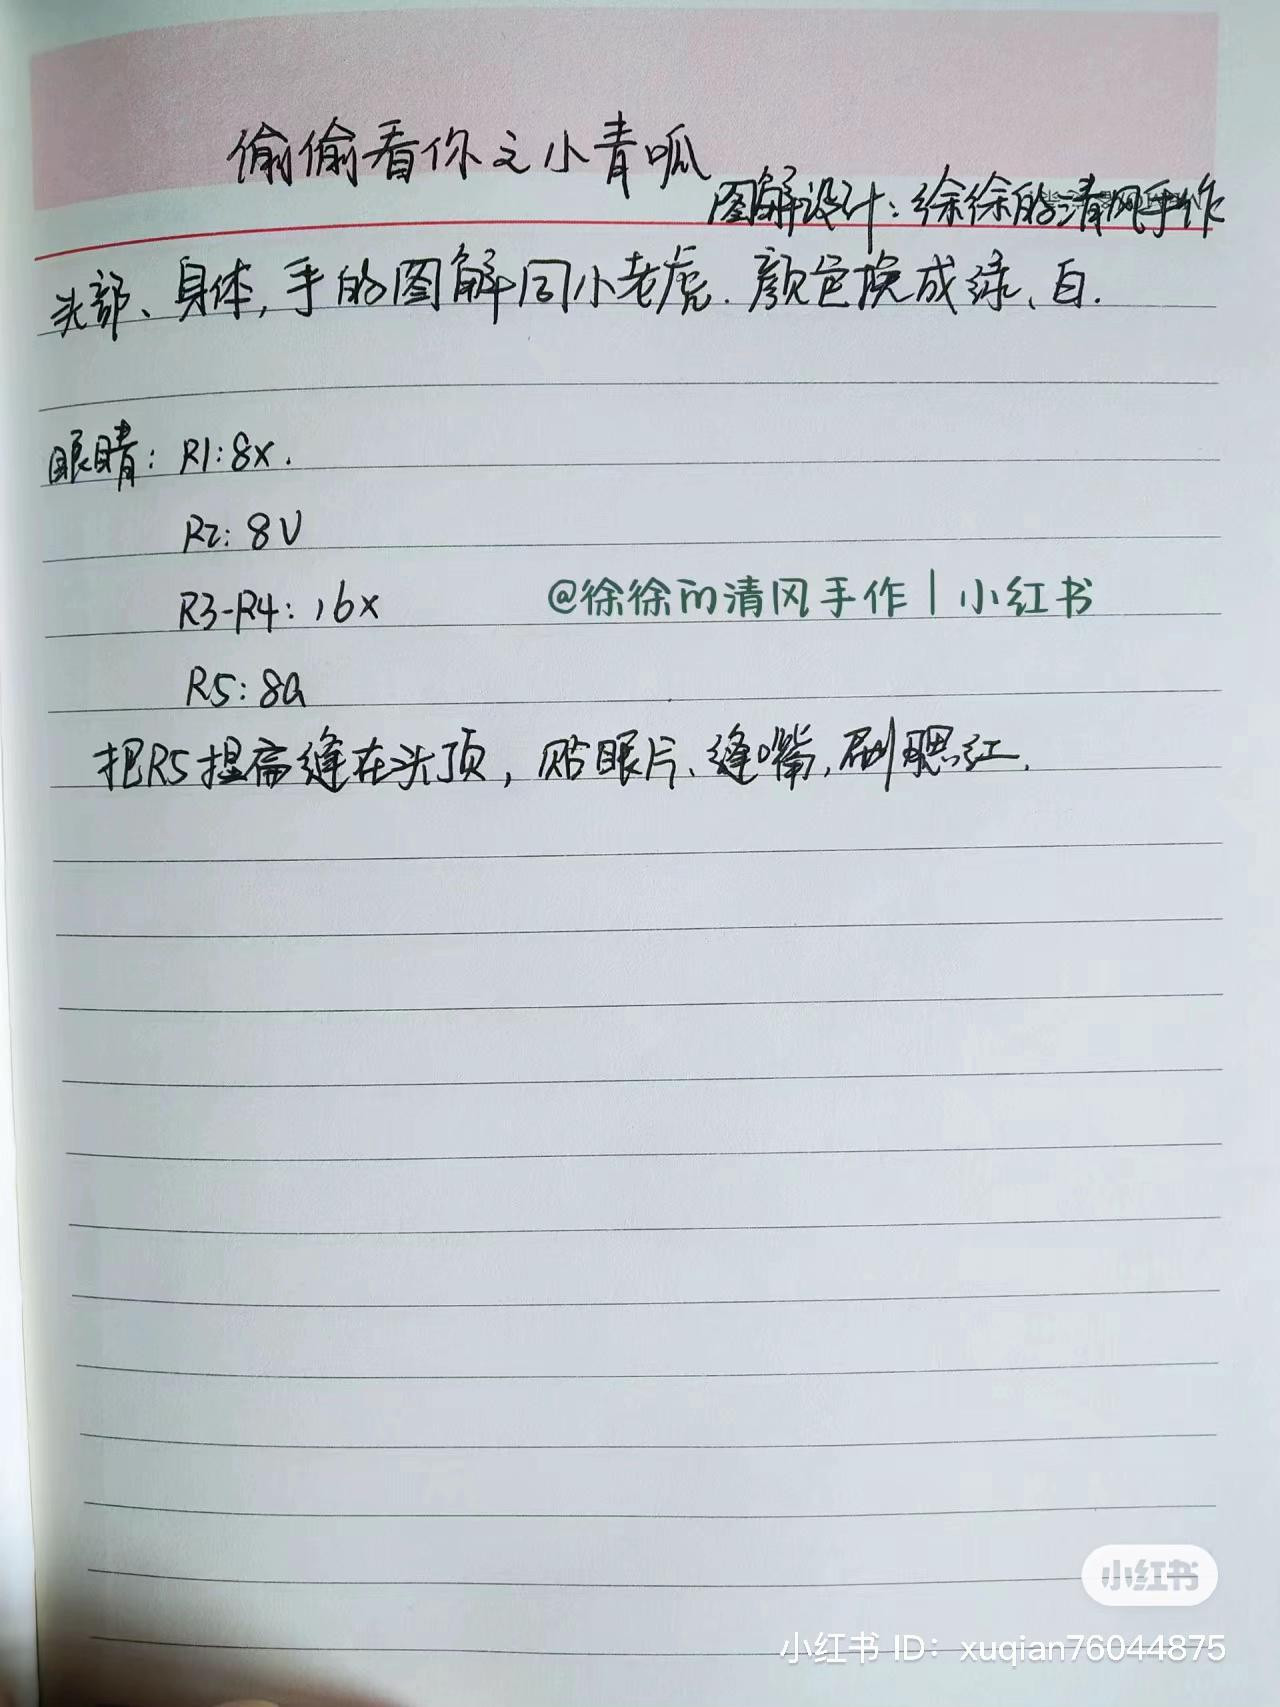 偷偷看你之小青呱
图解设计：徐徐的清风手作
头部、身体，手的图解同小老虎.颜色换成绿、白.
眼睛：R1:8x.
R2:8V
R3-R4:16x
@徐徐的清风手作 | 小红书
R5:8A
把R5捏扁缝在头顶，贴眼片、缝嘴，刷腮红.
小红书
小红书 ID：xuqian76044875